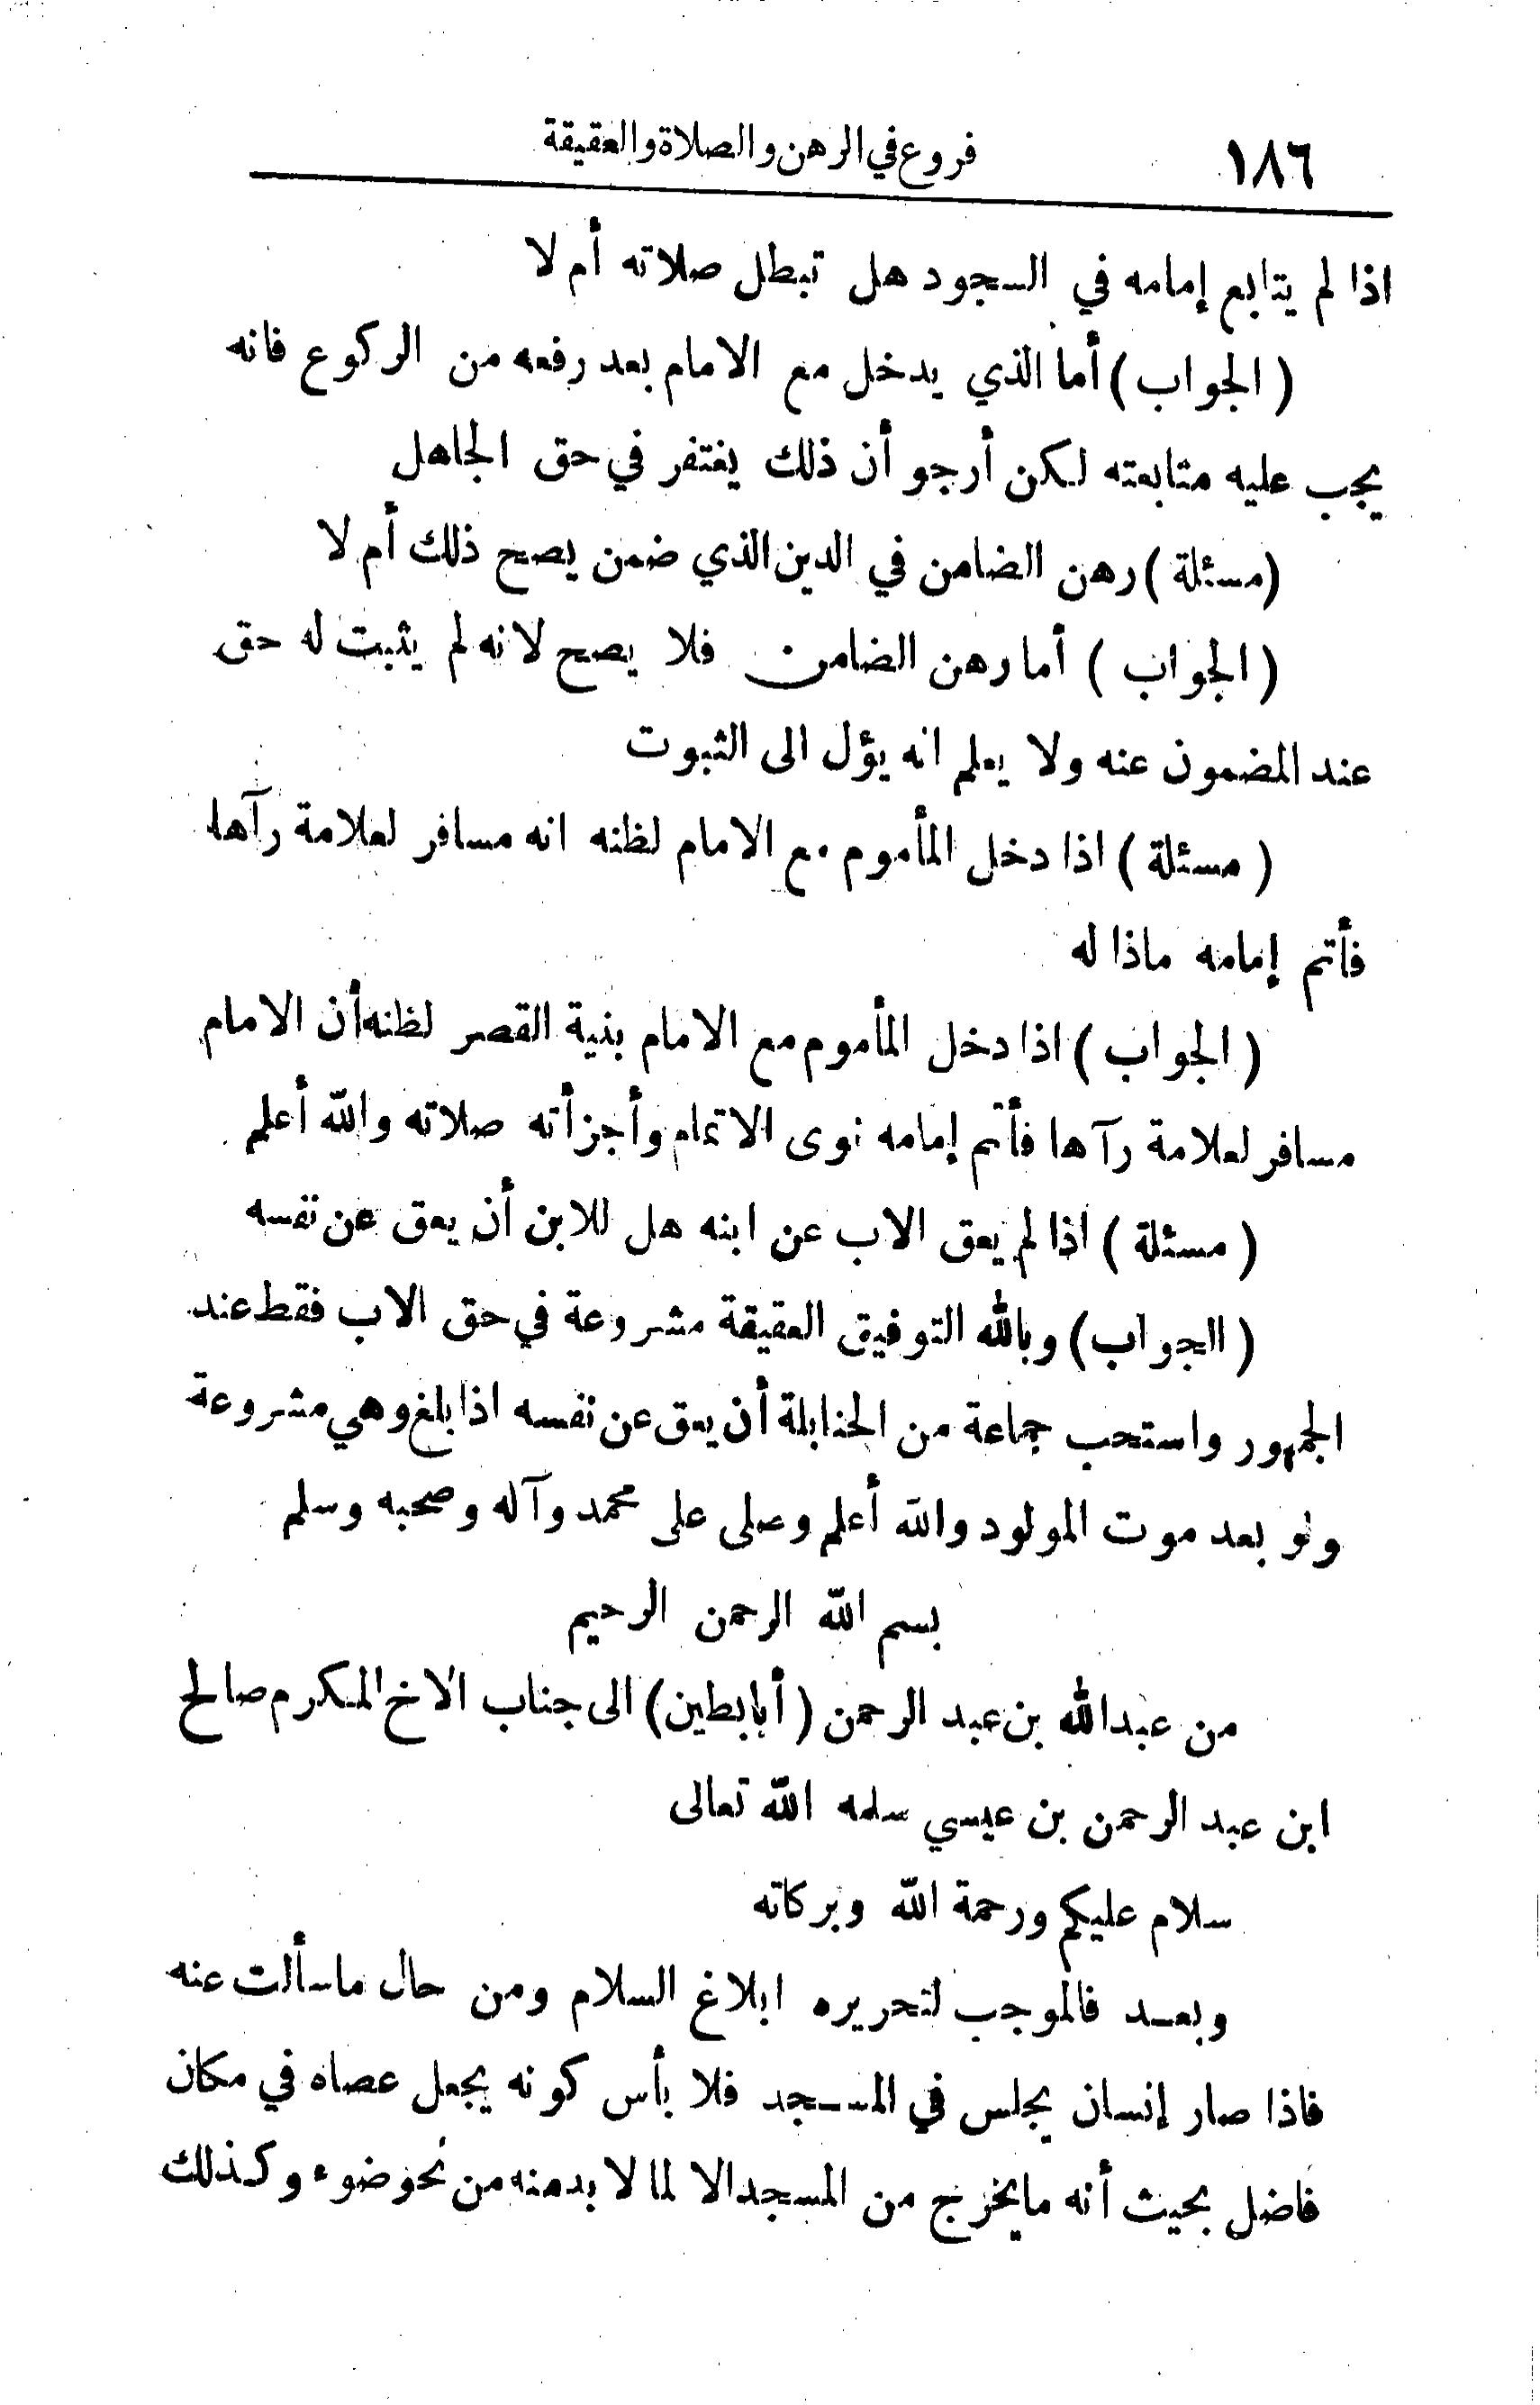 ١٨٦ فروع في الرهن والصلاة والعقيقة
اذا لم يتابع إمامه في السجود هل تبطل صلاته أم لا
( الجواب ) أما الذي يدخل مع الامام بعد رفعه من الركوع فانه
يجب عليه متابعته لكن أرجو أن ذلك يغتفر في حق الجاهل
(مسئلة ) رهن الضامن في الدين الذي ضمن يصح ذلك أم لا
( الجواب ) أما رهن الضامن فلا يصح لانه لم يثبت له حق
عند المضمون عنه ولا يعلم انه يؤل الى الثبوت
( مسئلة ) اذا دخل المأموم مع الامام لظنه انه مسافر لعلامة رآها
فأتم إمامه ماذا له
( الجواب ) اذا دخل المأموم مع الامام بنية القصر لظنه أن الامام
مسافر لعلامة رآها فأتم إمامه نوى الاتمام وأجزأته صلاته والله أعلم
( مسئلة ) اذا لم يعق الاب عن ابنه هل للابن أن يعق عن نفسه
( الجواب ) وبالله التوفيق العقيقة مشروعة في حق الاب فقط عند
الجمهور واستحب جماعة من الحنابلة أن يعق عن نفسه اذا بلغ وهي مشروعة
ولو بعد موت المولود والله أعلم وصلى على محمد وآله وصحبه وسلم
بسم الله الرحمن الرحيم
من عبدالله بن عبد الرحمن ( أبابطين ) الى جناب الاخ المكرم صالح
ابن عبد الرحمن بن عيسي سلمه الله تعالى
سلام عليكم ورحمة الله وبركاته
وبعد فالموجب لتحريره ابلاغ السلام ومن حال ماسألت عنه
فاذا صار إنسان يجلس في المسجد فلا بأس كونه يجعل عصاه في مكان
فاضل بحيث أنه مايخرج من المسجد الا لما لا بد منه من نحو ضوء وكذلك